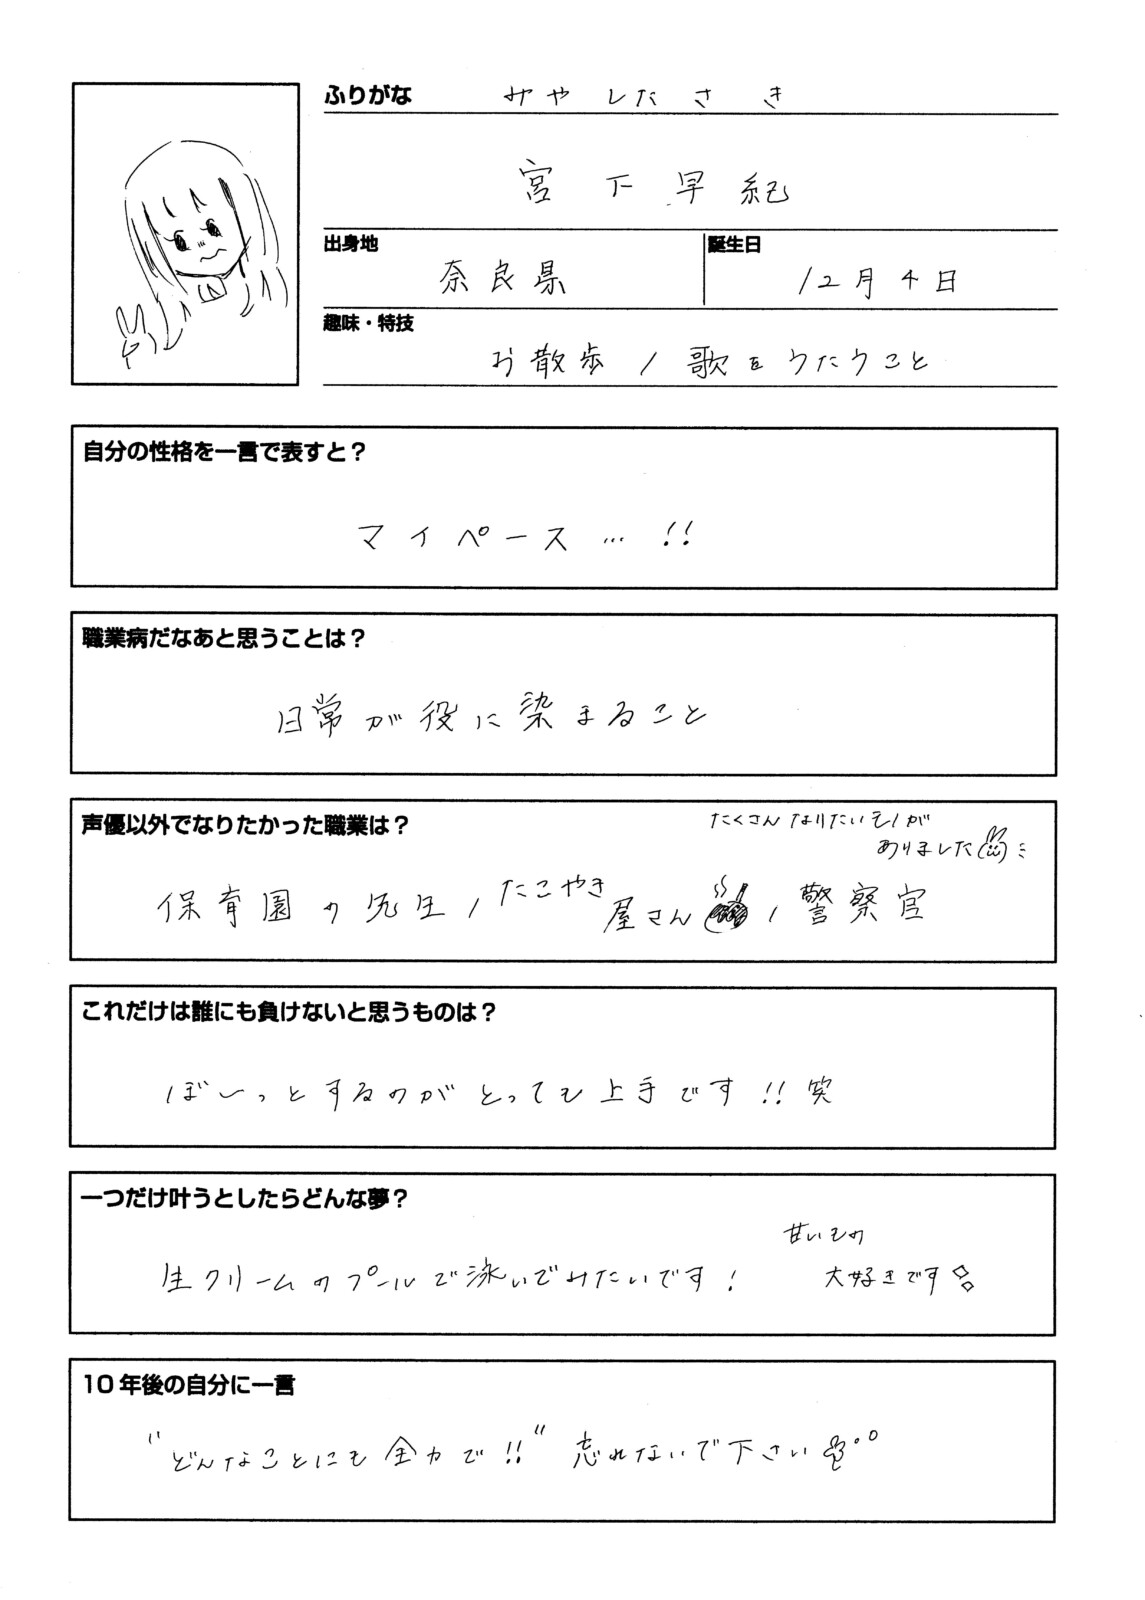 ふりがな みやしたさき
宮下早紀
出身地 誕生日
奈良県 12月4日
趣味・特技
お散歩 / 歌をうたうこと
自分の性格を一言で表すと？
マイペース…!!
職業病だなあと思うことは？
日常が役に染まること
声優以外でなりたかった職業は？
たくさんなりたいモノが
ありました
保育園の先生 / たこやき屋さん / 警察官
これだけは誰にも負けないと思うものは？
ぼーっとするのがとっても上手です!!笑
一つだけ叶うとしたらどんな夢？
生クリームのプールで泳いでみたいです!
甘いもの
大好きです
10年後の自分に一言
"どんなことにも全力で!!"忘れないで下さい